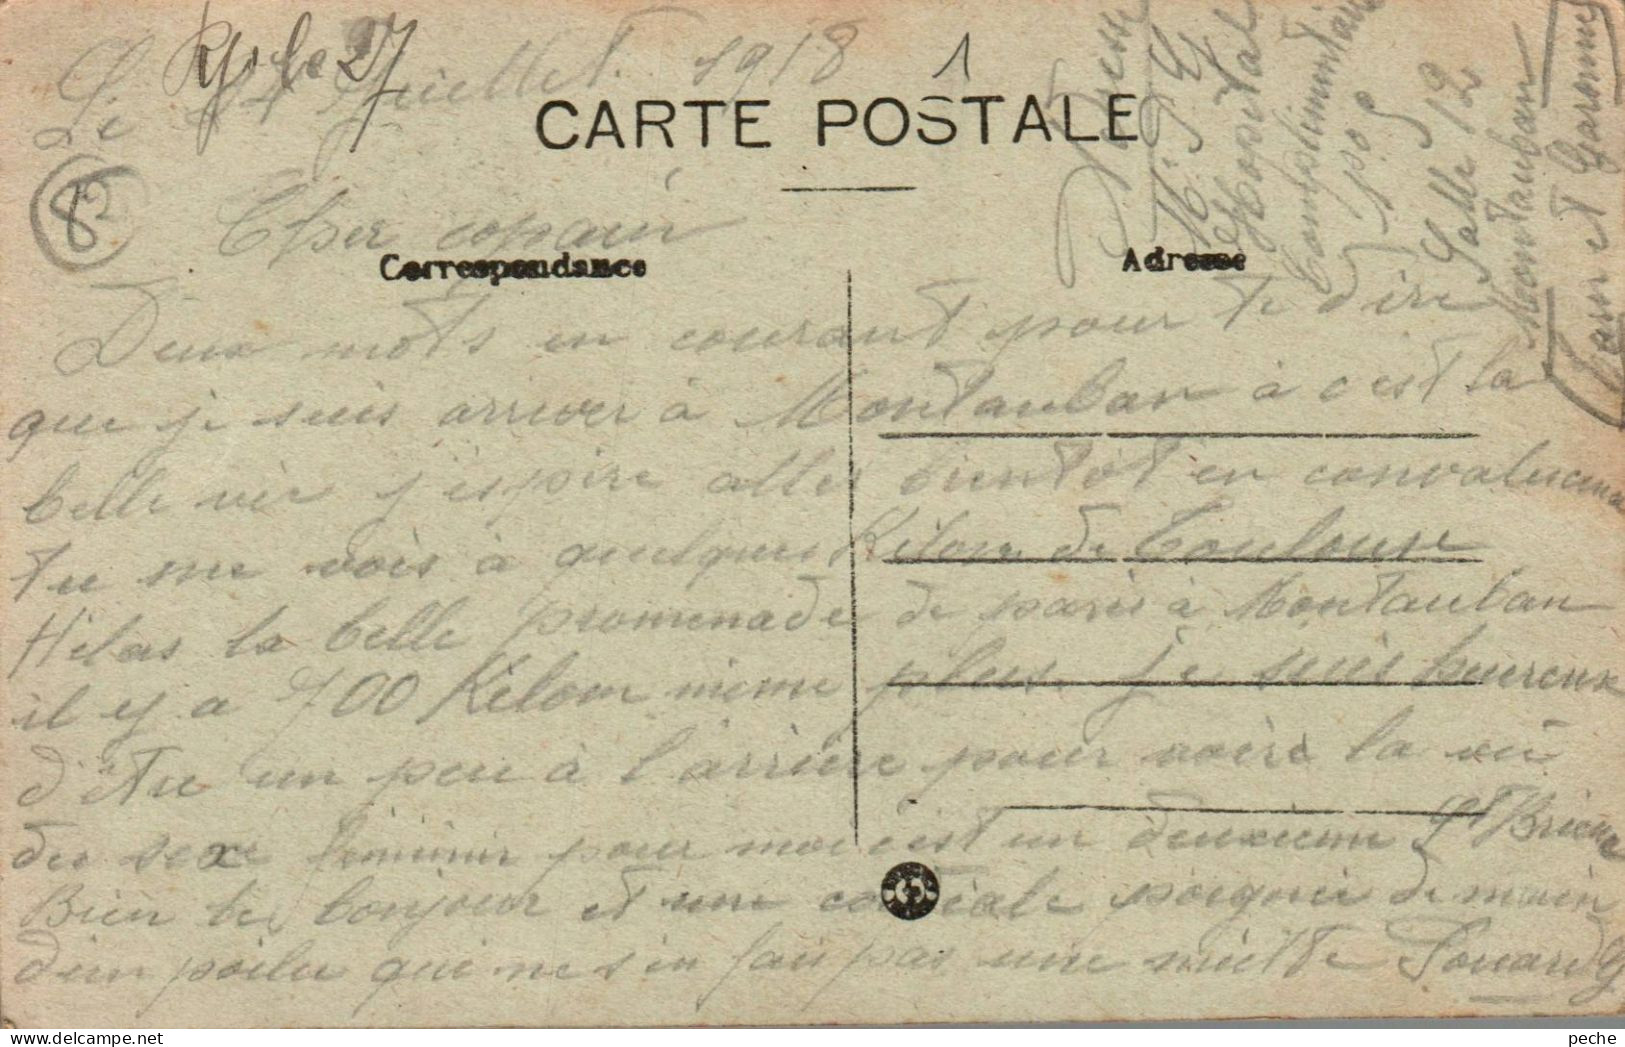 Ryole 27
Le Juillet 1918
1
CARTE POSTALE
82
Cher copain
Correspondance
Adresse
Deux mots en courant pour te dire
que je suis arriver à Montauban à c'est la
belle vie j'espire aller bientot en convalecence
tu me vois à quelques Kilom de Toulouse
Hélas la belle promenade de paris à Montauban
il y a 700 Kilom meme plus. je suis heureux
d'etre un peu à l'arriere pour voire la vie
du sexe feminin pour moi c'est un deuxieme St Brieuc
Bien le bonjour et une cordiale poignée de main
d'un poilu qui ne s'en fait pas une miette Souard G
Adresse
Mr S G
Hopital
Complimentaire
No 5
Salle 12
Montauban
Tarn et Garonne
peche